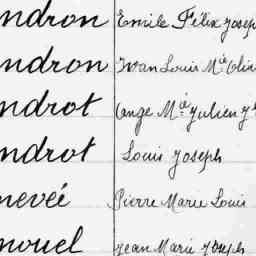 ndron Emile Félix Joseph
ndron Yvan Louis Mie
ndrot Ange Mie Julien
ndrot Louis Joseph
nevéé Pierre Marie Louis
nouel Jean Marie Joseph